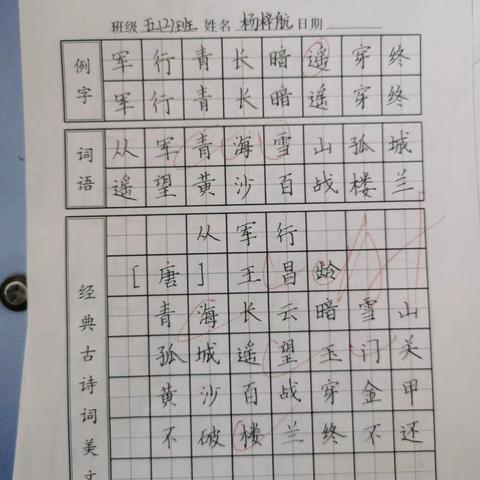 班级 五(2)班 姓名 杨梓航 日期
例字
军行青长暗遥穿终
军行青长暗遥穿终
词语
从军青海雪山孤城
遥望黄沙百战楼兰
经典古诗词美文
从军行
[唐] 王昌龄
青海长云暗雪山
孤城遥望玉门关
黄沙百战穿金甲
不破楼兰终不还